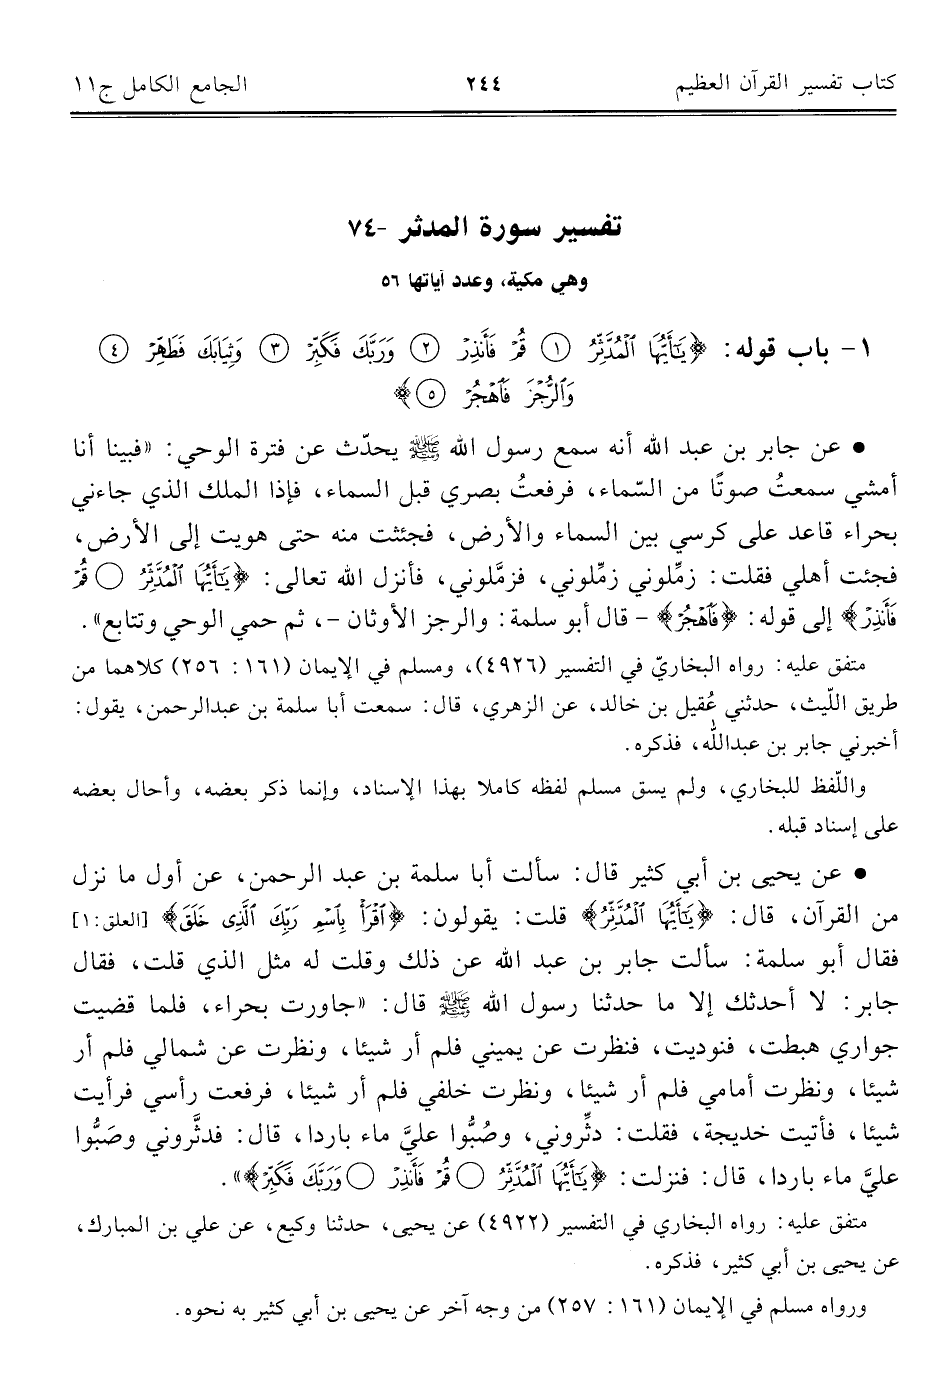 كتاب تفسير القرآن العظيم ٢٤٤ الجامع الكامل ج١١
تفسير سورة المدثر -٧٤
وهي مكية، وعدد آياتها ٥٦
١- باب قوله: ﴿يَٰٓأَيُّهَا ٱلْمُدَّثِّرُ ١ قُمْ فَأَنذِرْ ٢ وَرَبَّكَ فَكَبِّرْ ٣ وَثِيَابَكَ فَطَهِّرْ ٤
وَٱلرُّجْزَ فَٱهْجُرْ ٥﴾
• عن جابر بن عبد الله أنه سمع رسول الله ﷺ يحدّث عن فترة الوحي: «فبينا أنا
أمشي سمعتُ صوتًا من السّماء، فرفعتُ بصري قبل السماء، فإذا الملك الذي جاءني
بحراء قاعد على كرسي بين السماء والأرض، فجئثت منه حتى هويت إلى الأرض،
فجئت أهلي فقلت: زمِّلوني زمِّلوني، فزمَّلوني، فأنزل الله تعالى: ﴿يَٰٓأَيُّهَا ٱلْمُدَّثِّرُ ○ قُمْ
فَأَنذِرْ﴾ إلى قوله: ﴿فَٱهْجُرْ﴾ - قال أبو سلمة: والرجز الأوثان -، ثم حمي الوحي وتتابع».
متفق عليه: رواه البخاريّ في التفسير (٤٩٢٦)، ومسلم في الإيمان (١٦١: ٢٥٦) كلاهما من
طريق اللّيث، حدثني عُقيل بن خالد، عن الزهري، قال: سمعت أبا سلمة بن عبدالرحمن، يقول:
أخبرني جابر بن عبدالله، فذكره.
واللّفظ للبخاري، ولم يسق مسلم لفظه كاملا بهذا الإسناد، وإنما ذكر بعضه، وأحال بعضه
على إسناد قبله.
• عن يحيى بن أبي كثير قال: سألت أبا سلمة بن عبد الرحمن، عن أول ما نزل
من القرآن، قال: ﴿يَٰٓأَيُّهَا ٱلْمُدَّثِّرُ﴾ قلت: يقولون: ﴿ٱقْرَأْ بِٱسْمِ رَبِّكَ ٱلَّذِى خَلَقَ﴾ [العلق:١]
فقال أبو سلمة: سألت جابر بن عبد الله عن ذلك وقلت له مثل الذي قلت، فقال
جابر: لا أحدثك إلا ما حدثنا رسول الله ﷺ قال: «جاورت بحراء، فلما قضيت
جواري هبطت، فنوديت، فنظرت عن يميني فلم أر شيئا، ونظرت عن شمالي فلم أر
شيئا، ونظرت أمامي فلم أر شيئا، ونظرت خلفي فلم أر شيئا، فرفعت رأسي فرأيت
شيئا، فأتيت خديجة، فقلت: دثِّروني، وصُبُّوا عليَّ ماء باردا، قال: فدثَّروني وصَبُّوا
عليَّ ماء باردا، قال: فنزلت: ﴿يَٰٓأَيُّهَا ٱلْمُدَّثِّرُ ○ قُمْ فَأَنذِرْ ○ وَرَبَّكَ فَكَبِّرْ﴾».
متفق عليه: رواه البخاري في التفسير (٤٩٢٢) عن يحيى، حدثنا وكيع، عن علي بن المبارك،
عن يحيى بن أبي كثير، فذكره.
ورواه مسلم في الإيمان (١٦١: ٢٥٧) من وجه آخر عن يحيى بن أبي كثير به نحوه.